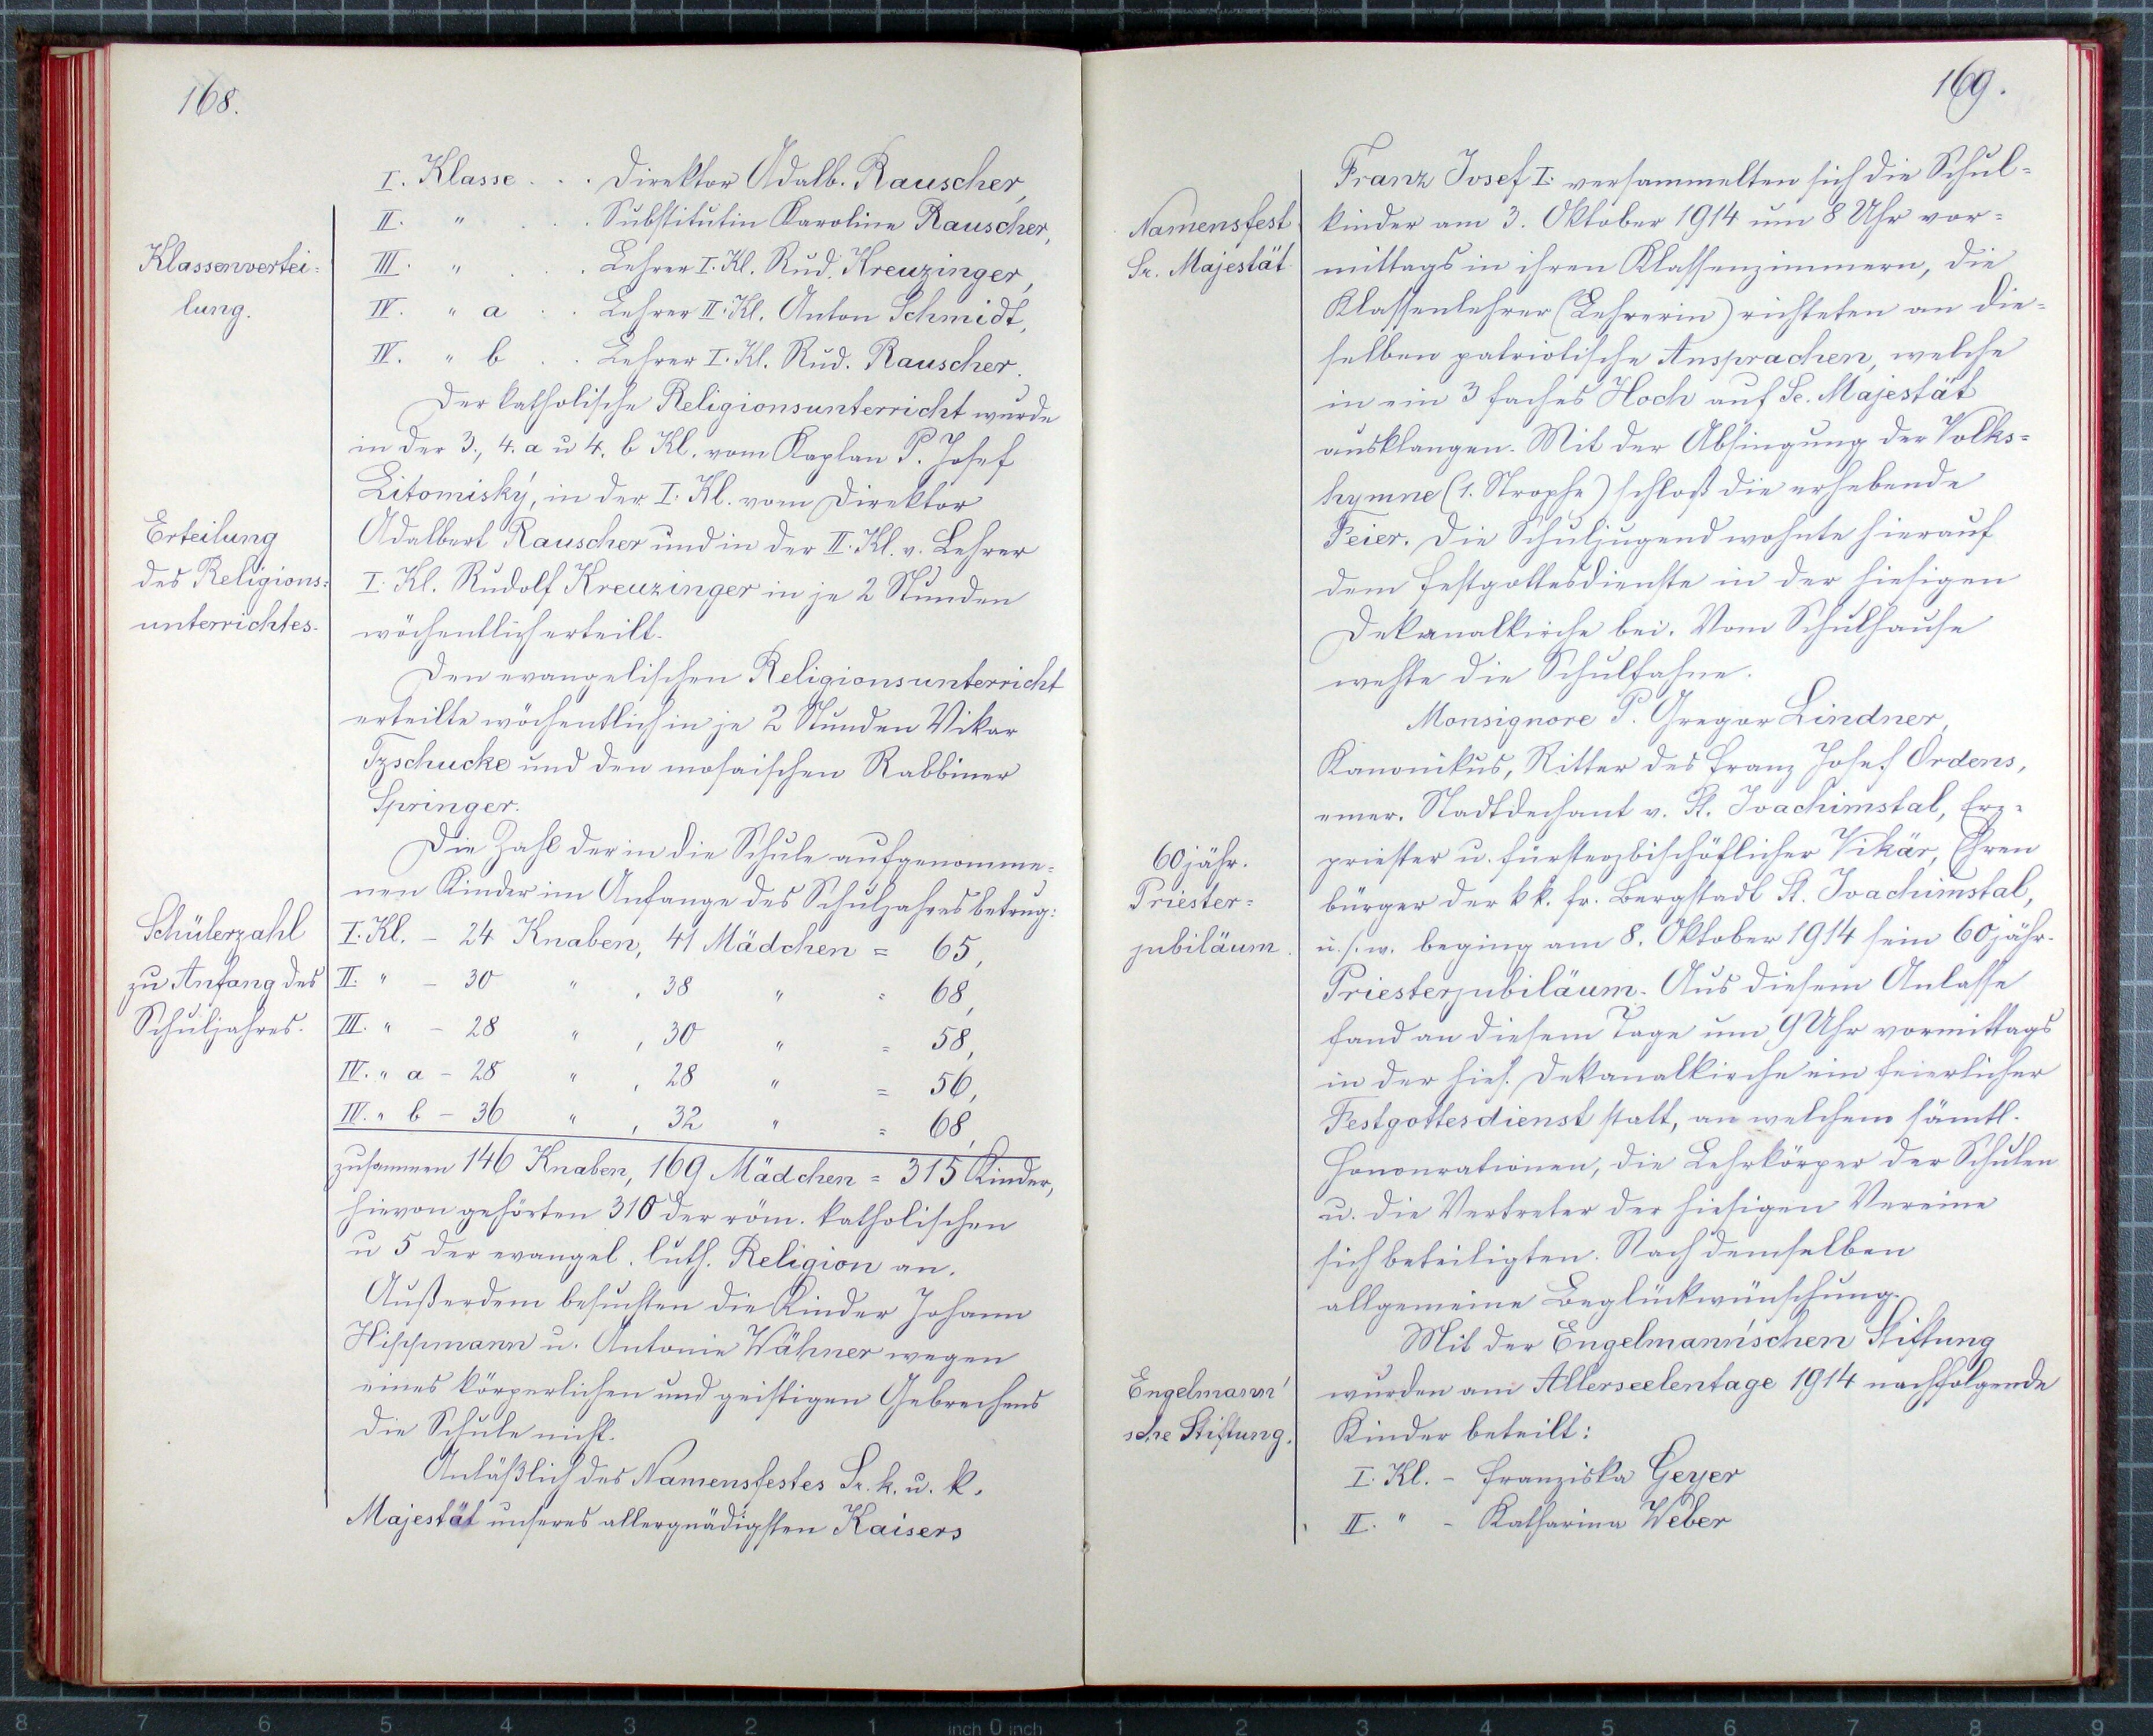 168.
I. Klasse . . . Direktor Adalb. Rauscher,
II. " . . . Substitutin Karoline Rauscher,
Klassenvertei=
lung.
III. " . . . Lehrer I. Kl. Rud. Kreuzinger,
IV. " a . . Lehrer II. Kl. Anton Schmidt,
IV. " b . . Lehrer I. Kl. Rud. Rauscher.
Der katholische Religionsunterricht wurde
in der 3., 4. a u 4. b Kl. vom Kaplan P. Josef
Litomiský, in der I. Kl. vom Direktor
Erteilung
des Religions=
unterrichtes.
Adalbert Rauscher und in der II. Kl. v. Lehrer
I. Kl. Rudolf Kreuzinger in je 2 Stunden
wöchentlich erteilt.
Den evangelischen Religionsunterricht
erteilte wöchentlich in je 2 Stunden Vikar
Tzschucke und den mosaischen Rabbiner
Springer.
Die Zahl der in die Schule aufgenomme=
nen Kinder im Anfange des Schuljahres betrug:
Schülerzahl
zu Anfang des
Schuljahres.
I. Kl. - 24 Knaben, 41 Mädchen = 65,
II. " - 30 " , 38 " = 68,
III. " - 28 " , 30 " = 58,
IV. " a - 28 " , 28 " = 56,
IV. " b - 36 " , 32 " = 68,
zusammen 146 Knaben, 169 Mädchen = 315 Kinder,
hievon gehörten 310 der röm. katholischen
u 5 der evangel. luth. Religion an.
Außerdem besuchten die Kinder Johann
Hippmann u. Antonie Wähner wegen
eines körperlichen und geistigen Gebrechens
die Schule nicht.
Anläßlich des Namensfestes Sr. k. u. k.
Majestät unseres allergnädigsten Kaisers
169.
Franz Josef I. versammelten sich die Schul=
Namensfest
Sr. Majestät
kinder am 3. Oktober 1914 um 8 Uhr vor=
mittags in ihren Klassenzimmern, die
Klassenlehrer (Lehrerin) richteten an die=
selben patriotische Ansprachen, welche
in ein 3 faches Hoch auf Se. Majestät
ausklangen. Mit der Absingung der Volks=
hymne (1. Strophe) schloß die erhebende
Feier. Die Schuljugend wohnte hierauf
dem Festgottesdienste in der hiesigen
Dekanalkirche bei. Vom Schulhause
wehte die Schulfahne.
Monsignore P. Gregor Lindner,
Kanonikus, Ritter des Franz Josef Ordens,
emer. Stadtdechant v. St. Joachimstal, Erz=
60jähr.
Priester=
jubiläum.
priester u. fürsterzbischöflicher Vikär, Ehren
bürger der kk. fr. Bergstadt St. Joachimstal,
u. s. w. beging am 8. Oktober 1914 sein 60jähr.
Priesterjubiläum. Aus diesem Anlasse
fand an diesem Tage um 9 Uhr vormittags
in der hies. Dekanalkirche ein feierlicher
Festgottesdienst statt, an welchem sämtl.
Honorationen, die Lehrkörper der Schulen
u. die Vertreter der hiesigen Vereine
sich beteiligten. Nach demselben
allgemeine Beglückwünschung.
Mit der Engelmann'schen Stiftung
Engelmann'
sche Stiftung.
wurden am Allerseelentage 1914 nachfolgende
Kinder beteilt:
I. Kl. - Franziska Geyer
II. " - Katharina Weber
8 7 6 5 4 3 2 1 inch 0 inch 1 2 3 4 5 6 7 8 9